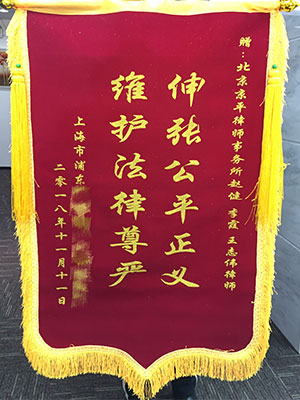 赠：北京京平律师事务所赵健 李霞 王志伟律师
伸张公平正义
维护法律尊严
上海市浦东
二零一八年十一月十一日